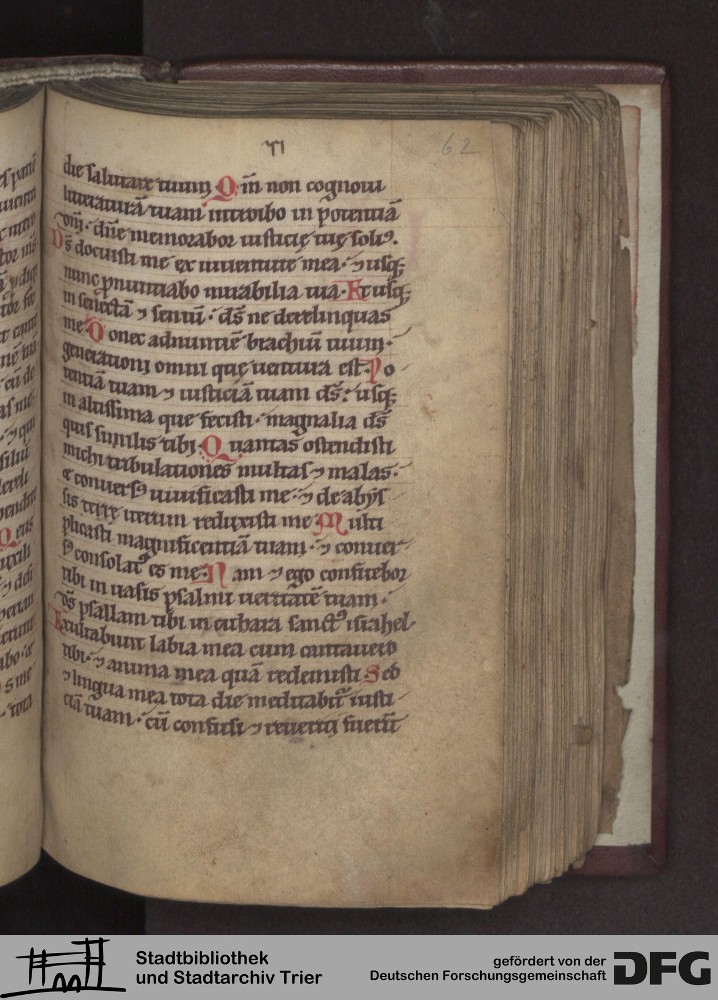 VI
62
die salutare tuum Q͞m non cognoui
litteraturā tuam introibo in potentiā
dn̄i · dn̄e memorabor iusticię tuę soliꝰ.
D͞s docuisti me ex iuuentute mea · ⁊ usq;
nunc ꝓnuntiabo mirabilia tua · Et usq;
in senectā ⁊ seniū · d͞s ne derelinquas
me · Donec adnuntiē brachiū tuum ·
generationi omni quę uentura est · Po
tentiā tuam ⁊ iusticiā tuam d͞s · usq;
in altissima que fecisti · magnalia d͞s
quis similis tibi · Quantas ostendisti
michi tribulationes multas ⁊ malas ·
⁊ conuersꝰ uiuificasti me · ⁊ de abys
sis terrę iterum reduxisti me Multi
plicasti magnificentiā tuam · ⁊ conuer
sꝰ consolatꝰ es me · Nam ⁊ ego confitebor
tibi in uasis psalmi ueritatē tuam ·
d͞s psallam tibi in cithara sanctꝰ israhel ·
Exultabunt labia mea cum cantauero
tibi · ⁊ anima mea quā redemisti Sed
⁊ lingua mea tota die meditabit᷑ iusti
ciā tuam · cū confusi ⁊ reueriti fuerīt
Stadtbibliothek
und Stadtarchiv Trier
gefördert von der
Deutschen Forschungsgemeinschaft
DFG